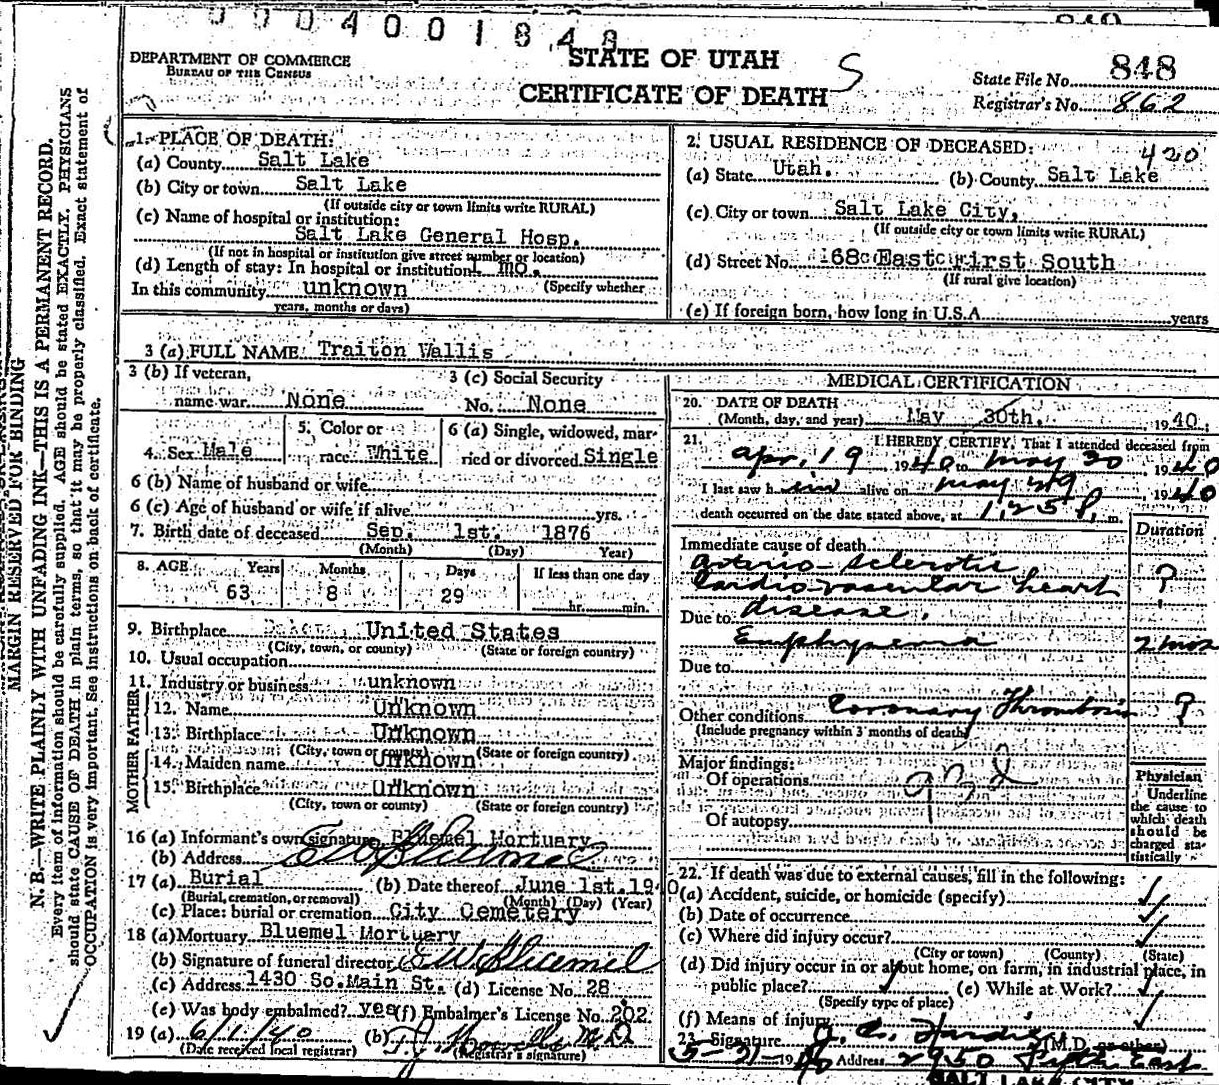 0004001848
STATE OF UTAH
CERTIFICATE OF DEATH
DEPARTMENT OF COMMERCE
BUREAU OF THE CENSUS
S
State File No. 848
Registrar's No. 862
MARGIN RESERVED FOR BINDING
N. B.—WRITE PLAINLY WITH UNFADING INK—THIS IS A PERMANENT RECORD.
Every item of information should be carefully supplied. AGE should be stated EXACTLY. PHYSICIANS
should state CAUSE OF DEATH in plain terms, so that it may be properly classified. Exact statement of
OCCUPATION is very important. See instructions on back of certificate.
1. PLACE OF DEATH:
(a) County Salt Lake
(b) City or town Salt Lake
(If outside city or town limits write RURAL)
(c) Name of hospital or institution:
Salt Lake General Hosp.
(If not in hospital or institution give street number or location)
(d) Length of stay: In hospital or institution 1 mo.
In this community unknown (Specify whether
years, months or days)
2. USUAL RESIDENCE OF DECEASED: 420
(a) State Utah. (b) County Salt Lake
(c) City or town Salt Lake City,
(If outside city or town limits write RURAL)
(d) Street No. East First South
(If rural give location)
(e) If foreign born, how long in U.S.A. years
3 (a) FULL NAME: Traiton Wallis
3 (b) If veteran, name war None
3 (c) Social Security No. None
4. Sex Male
5. Color or race White
6 (a) Single, widowed, married or divorced Single
6 (b) Name of husband or wife
6 (c) Age of husband or wife if alive yrs.
7. Birth date of deceased Sep. 1st. 1876
(Month) (Day) Year)
8. AGE Years Months Days If less than one day
63 8 29 hr. min.
9. Birthplace United States
(City, town, or county) (State or foreign country)
10. Usual occupation
11. Industry or business unknown
FATHER
12. Name Unknown
13. Birthplace Unknown
(City, town or county) (State or foreign country)
MOTHER
14. Maiden name Unknown
15. Birthplace Unknown
(City, town or county) (State or foreign country)
16 (a) Informant's own signature Bluemel Mortuary
(b) Address E W Bluemel
17 (a) Burial (b) Date thereof June 1st. 1940
(Burial, cremation, or removal) (Month) (Day) (Year)
(c) Place: burial or cremation City Cemetery
18 (a) Mortuary Bluemel Mortuary
(b) Signature of funeral director E W Bluemel
(c) Address 1430 So.Main St. (d) License No. 28
(e) Was body embalmed? yes (f) Embalmer's License No. 202
19 (a) 6/1/40 (b) M.D.
(Date received local registrar) (Registrar's signature)
MEDICAL CERTIFICATION
20. DATE OF DEATH
(Month, day, and year) May 30th, 1940
21. I HEREBY CERTIFY, That I attended deceased from
apr. 19 1940 to may 30 1940
I last saw him alive on may 29, 1940
death occurred on the date stated above, at 1:25 P. m.
Duration
Immediate cause of death
arterio-sclerotic
cardio-vascular heart ?
Due to disease.
Emphysema 2 mos
Due to
Other conditions Coronary Thrombosis ?
(Include pregnancy within 3 months of death)
Major findings:
Of operations
Of autopsy
Physician
Underline
the cause to
which death
should be
charged sta-
tistically
22. If death was due to external causes, fill in the following:
(a) Accident, suicide, or homicide (specify)
(b) Date of occurrence
(c) Where did injury occur?
(City or town) (County) (State)
(d) Did injury occur in or about home, on farm, in industrial place, in
public place? (e) While at Work?
(Specify type of place)
(f) Means of injury
23. Signature (M.D. or other)
5-31-1940 Address 2950 Fifth East